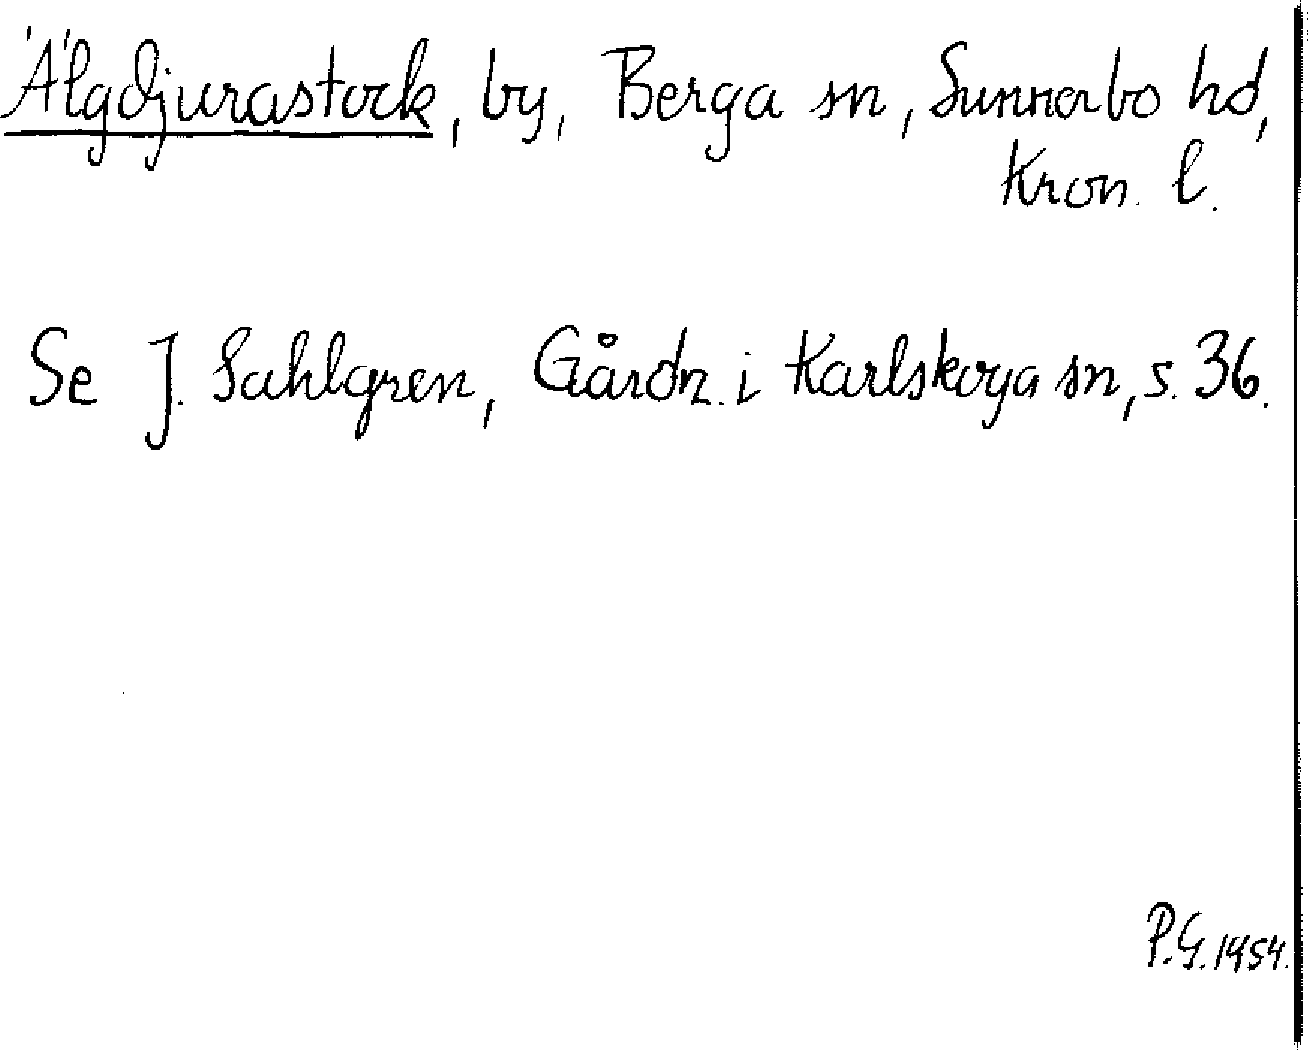 Älgdjurastock, by, Berga sn, Sunnerbo hd,
Kron. l.
Se J. Sahlgren, Gårdn. i Karlskoga sn, s. 36.
P.G. 1954.